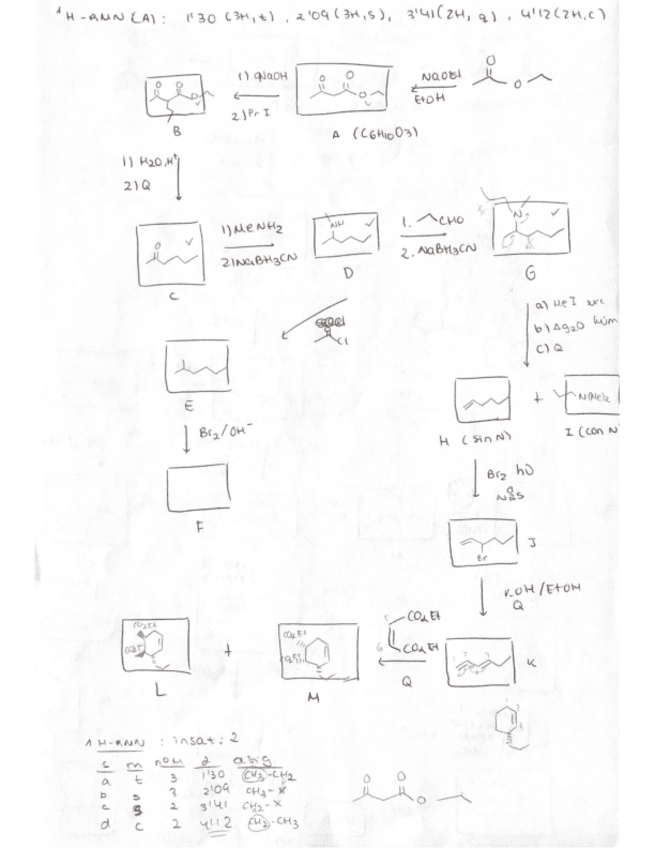 ¹H-RMN (A): 1'30 (3H, t), 2'09 (3H, s), 3'41 (2H, q), 4'12 (2H, c)
1) NaOH
2) PrI
NaOEt
EtOH
O O O
O O O
O O
B
A (C6H10O3)
1) H2O, H+
2) Q
O
1) MeNH2
2) NaBH3CN
NH
1. CHO
2. NaBH3CN
N
C
D
G
Cl
a) MeI exc
b) Ag2O hum
c) Q
E
Br2/OH-
+ N(Me)2
H (sin N)
I (con N
F
Br2 hν
o
NBS
Br
J
KOH/EtOH
Q
CO2Et
CO2Et
Q
CO2Et
CO2Et
+
CO2Et
CO2Et
K
L
M
1H-RMN: insat: 2
s m nºH δ asig
a t 3 1'30 CH3-CH2
b s 3 2'09 CH3-X
c s 2 3'41 CH2-X
d c 2 4'12 CH2-CH3
O O O